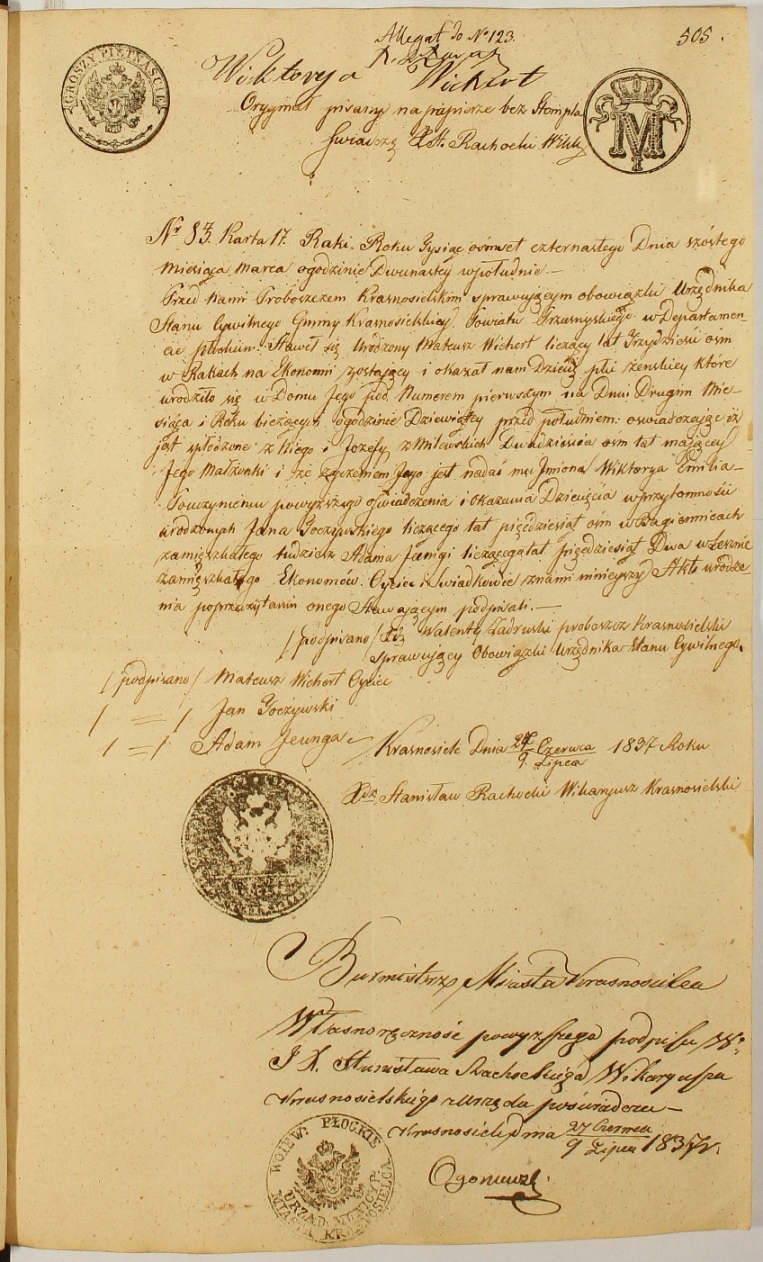 Allegat do No 123.
505.
GROSZY PIĘTNAŚCIE
Wiktorya Wichert
Oryginał pisany na papierze bez Stempla
Świadczę X. St. Rachocki Wik.
M
Nr 83. Karta 17. Raki. Roku Tysiąc ośmset czternastego Dnia szóstego
Miesiąca Marca o godzinie Dwunastey w południe.—
Przed Nami Proboszczem Krasnosielskim sprawującym obowiązki Urzędnika
Stanu Cywilnego Gminy Krasnosielskiey Powiatu Przasnyskiego w Departamen-
cie płockim. Stawił się Urodzony Mateusz Wichert liczący lat Trzydzieści ośm
w Rakach na Ekonomii zostający i okazał nam Dziecię płci żenskiey które
urodziło się w Domu Jego pod Numerem pierwszym na Dniu Drugim Mie-
siąca i Roku bieżących o godzinie Dziewiątey przed południem: oswiadczając iż
jest spłodzone z Niego i Jozefy z Milewskich Dwadzieścia ośm lat mającey
Jego Małżonki i że życzeniem Jego jest nadać mu Jmiona Wiktorya Emilia—
Po uczynieniu powyższego oświadczenia i okazania Dziecięcia w przytomności
urodzonych Jana Goczywskiego liczącego lat pięćdziesiąt ośm w Bagiennicach
zamięszkałego tudzież Adama liczącego lat pięćdziesiąt Dwa w
zamięszkałego Ekonomów. Oyciec i Swiadkowie z nami ninieyszy Akt urodze-
nia po przeczytaniu onego Stawającym podpisali.—
/podpisano/ Xdz Walenty Zadruski proboszcz Krasnosielski
sprawujący Obowiązki Urzędnika Stanu Cywilnego.
/podpisano/ Mateusz Wichert Oyciec
/ = / Jan Goczywski
/ = / Adam
Krasnosielc Dnia 27 Czerwca / 9 Lipca 1837 Roku
Xdz Stanisław Rachocki Wikaryusz Krasnosielski
Burmistrz Miasta Krasnosielca
Własnoręczność powyższego podpisu W:
J X. Stanisława Rachockiego Wikaryusza
Krasnosielskiego z Urzędu poświadcza—
Krasnosielc dnia 27 Czerwca / 9 Lipca 1837 r.
WOJEW: PŁOCKIE
URZĄD MUNICYP.
MIASTA KRASNOSIELCA